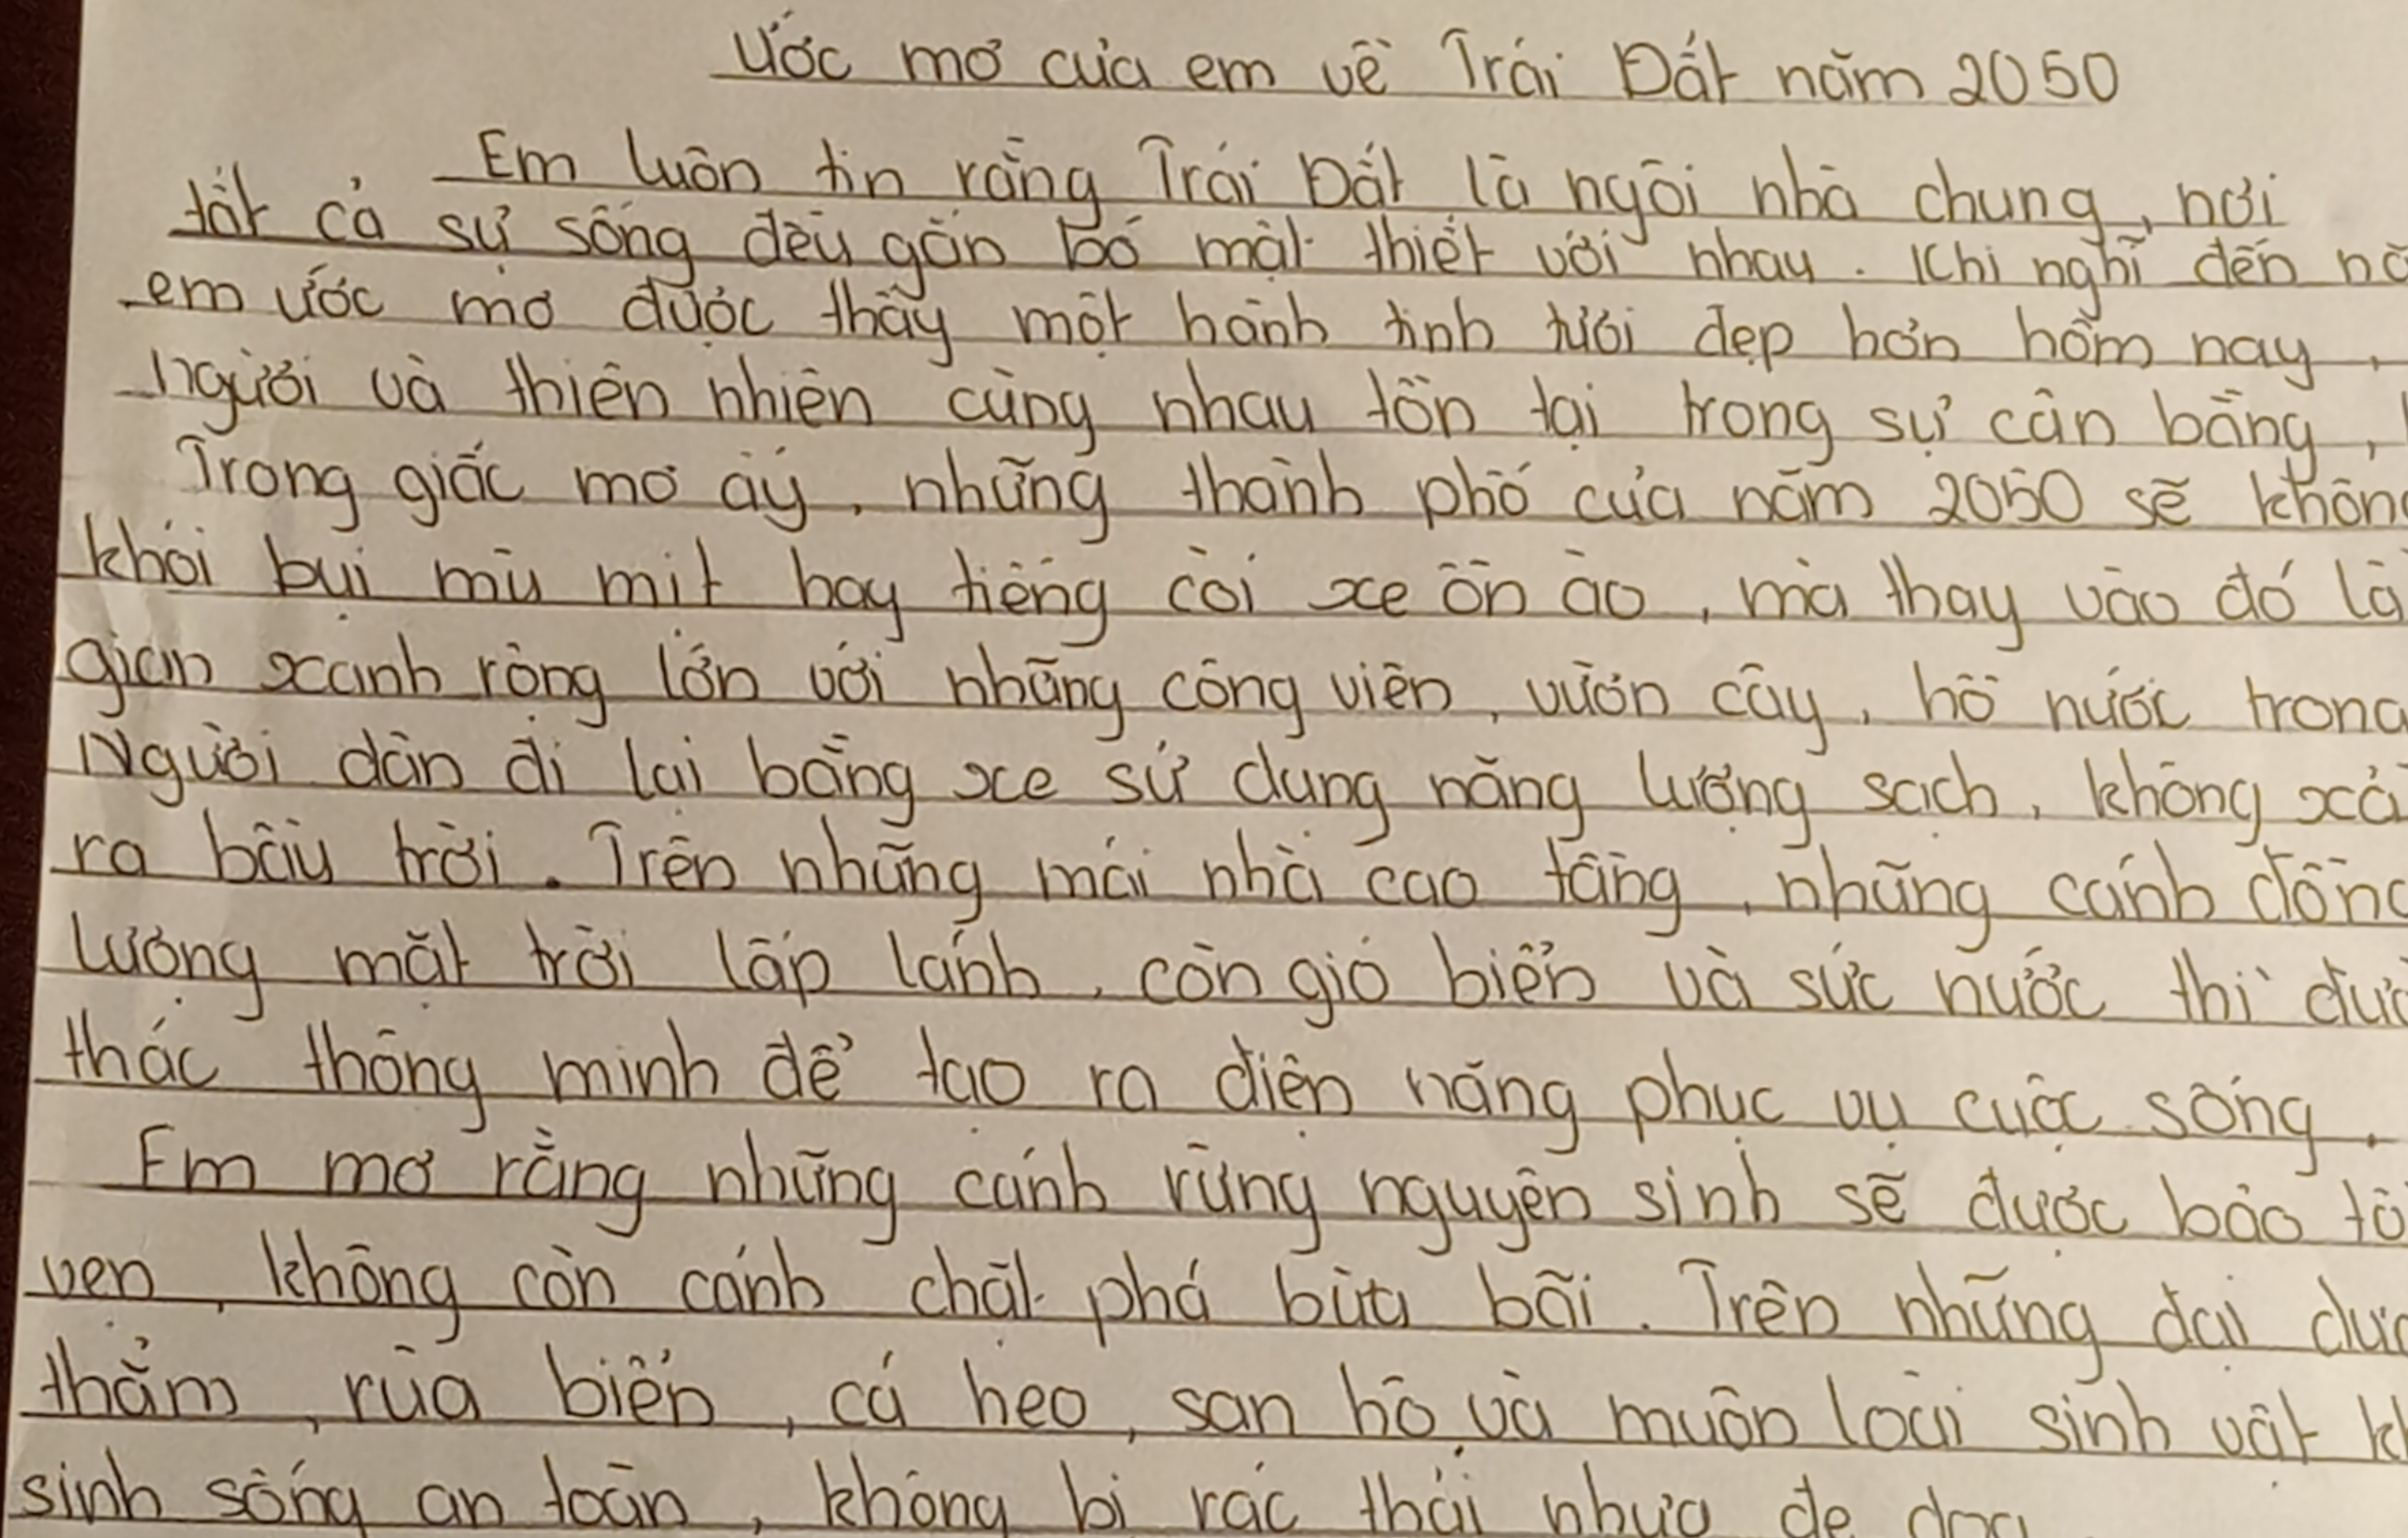 Ước mơ của em về Trái Đất năm 2050
Em luôn tin rằng Trái Đất là ngôi nhà chung, nơi
tất cả sự sống đều gắn bó mật thiết với nhau. Khi nghĩ đến
em ước mơ được thấy một hành tinh tươi đẹp hơn hôm nay,
người và thiên nhiên cùng nhau tồn tại trong sự cân bằng,
Trong giấc mơ ấy, những thành phố của năm 2050 sẽ không
khói bụi mù mịt hay tiếng còi xe ồn ào, mà thay vào đó là
gian xanh rộng lớn với những công viên, vườn cây, hồ nước trong
Người dân đi lại bằng xe sử dụng năng lượng sạch, không xả
ra bầu trời. Trên những mái nhà cao tầng, những cánh đồng
lượng mặt trời lấp lánh, còn gió biển và sức nước thì
thác thông minh để tạo ra điện năng phục vụ cuộc sống.
Em mơ rằng những cánh rừng nguyên sinh sẽ được bảo
vẹn, không còn cảnh chặt phá bừa bãi. Trên những đại
thẳm, rùa biển, cá heo, san hô và muôn loài sinh vật
sinh sống an toàn, không bị rác thải nhựa đe dọa